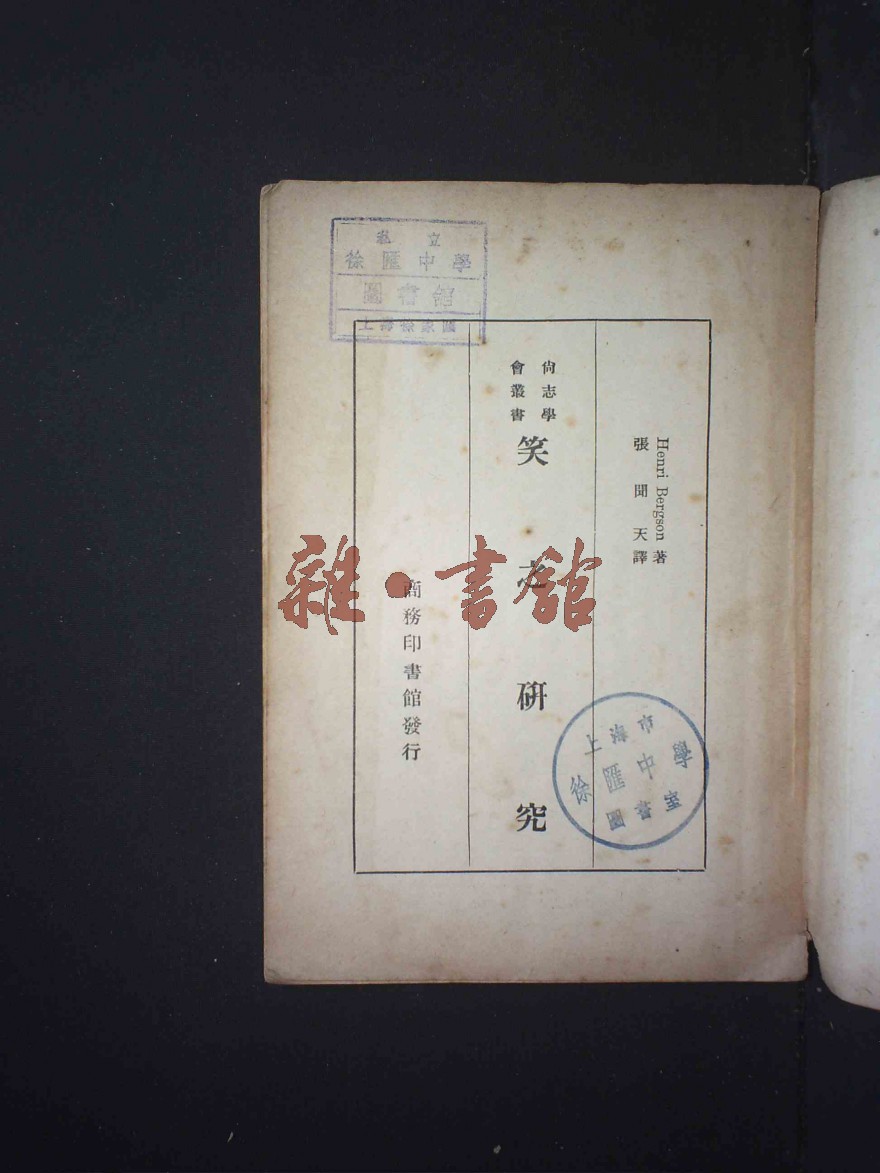 私立
徐匯中學
圖書館
上海徐家匯
Henri Bergson 著
張聞天譯
尙志學
會叢書
笑之研究
商務印書館發行
雜·書館
上海市
徐匯中學
圖書室